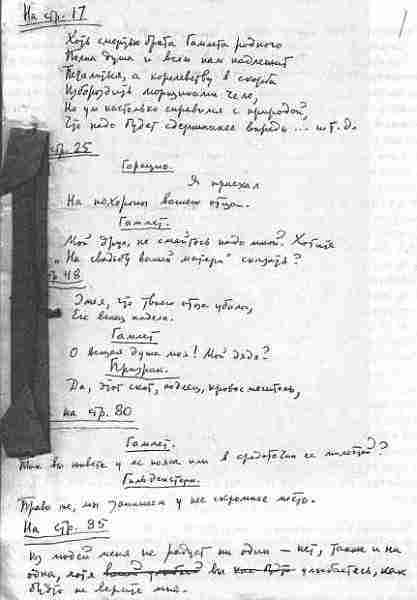 На стр. 17
Хоть смертью брата Гамлета родного
Полна душа и всем нам надлежит
Печалиться, а королевству в скорби
Избороздить морщинами чело,
Но ум настолько справился с природой,
Что надо будет сдержаннее впредь ... и т. д.
стр. 25
Горацио.
Я приехал
На похороны вашего отца.
Гамлет.
Мой друг, не смейтесь надо мной. Хотите
„На свадьбу вашей матери" сказать?
стр. 48
Змея, что твоего отца убила,
Его венец надела.
Гамлет
О вещая душа моя! Мой дядя?
Призрак.
Да, этот скот, подлец, кровосмеситель,
на стр. 80
Гамлет.
Так вы живете у ее пояса или в средоточии ее милостей?
Гильденстерн.
Право же, мы занимаем у нее скромное место.
На стр. 85
Из людей меня не радует ни один — нет, также и ни
одна, хотя вы улыбаетесь, как
будто не верите мне.